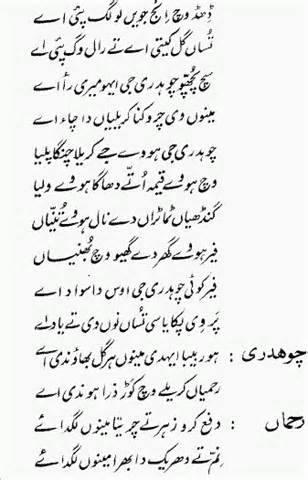 ڈھڈ وچ رانجھ جویں لوگ پئی اے
تُساں گل کیتی اے تے رال وگ پئی اے
سچ پُچھو چوہدری جی ایہو میری رأ اے
مینوں وی چروکنا کریلیاں دا چاء اے
چوہدری جی ہووے جے کریلا چنگا پلیا
وچ ہووے قیمہ اُتّے دھاگا ہووے ولیا
گنڈھیاں ٹماٹراں دے نال ہوے تُنیّاں
فیر ہوے گھر دے گھیو وچ بُھنیاں
فیر کوئی چوہدری جی اوس دا سواد اے
پر وی پکایا سی تُساں نوں وی تے یاد اے
چوہدری : ہور بیبا ایہدی مینوں ہر گل بھاؤندی اے
رحمیاں کریلے وچ کوڑ ذرا ہوندی اے
رحماں : دفع کرو زہر تے چریتا مینوں لگدا ئے
نِم تے دھریک دا بھرا مینوں لگدا ئے